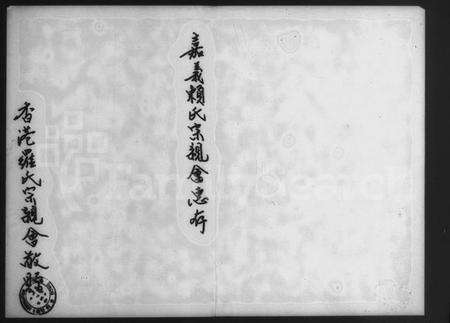 嘉義賴氏宗親會惠存
香港羅氏宗親會敬贈